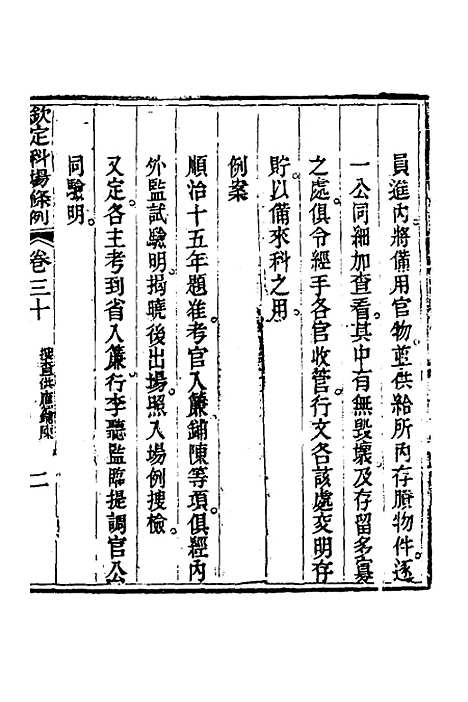 員進內將備用官物並供給所內存賸物件逐
一公同細加查看其中有無毀壞及存留多寡
之處俱令經手各官收管行文各該處交明存
貯以備來科之用
例案
順治十五年題准考官入簾鋪陳等項俱經內
外監試驗明揭曉後出場照入場例搜檢
又定各主考到省入簾行李聽監臨提調官公
同驗明
欽定科場條例 卷三十 搜查供應鋪陳 二